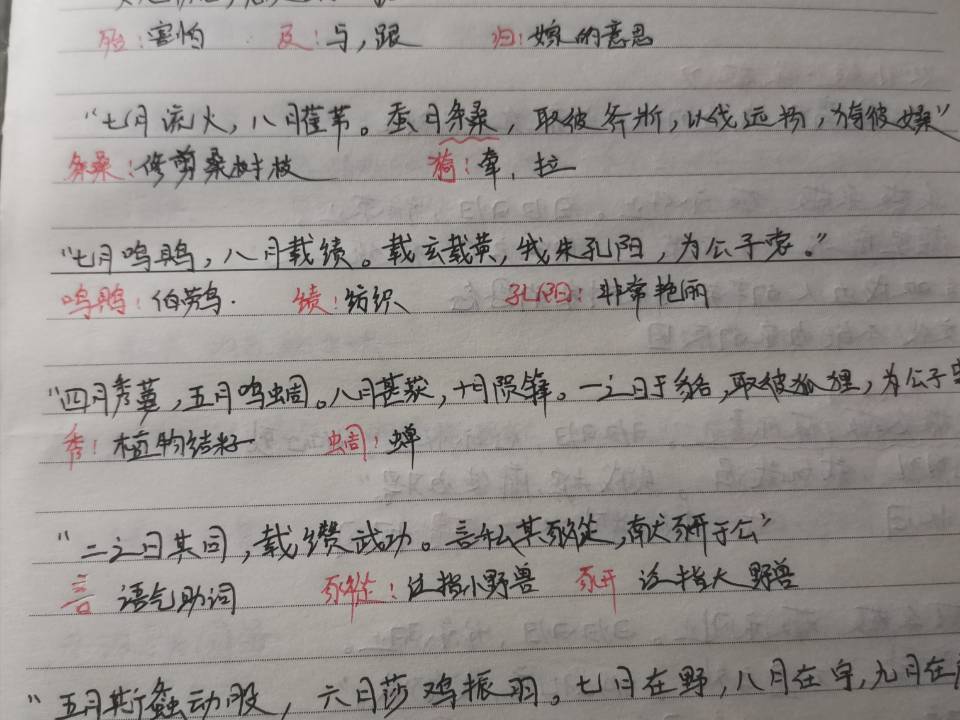 殆：害怕 及：与，跟 归：嫁的意思
“七月流火，八月萑苇。蚕月条桑，取彼斧斨，以伐远扬，猗彼
条桑：修剪桑树枝 猗：牵，拉
“七月鸣鵙，八月载绩。载玄载黄，我朱孔阳，为公子裳。”
鸣鵙：伯劳鸟. 绩：纺织 孔阳：非常艳丽
“四月秀葽，五月鸣蜩。八月其获，十月陨箨。一之日于貉，取彼狐狸，为公子
秀：植物结籽 蜩：蝉
“二之日其同，载缵武功。言私其豵，献豜于公”
言 语气助词 豵：这指小野兽 豜 这指大野兽
“五月斯螽动股，六月莎鸡振羽。七月在野，八月在宇，九月在